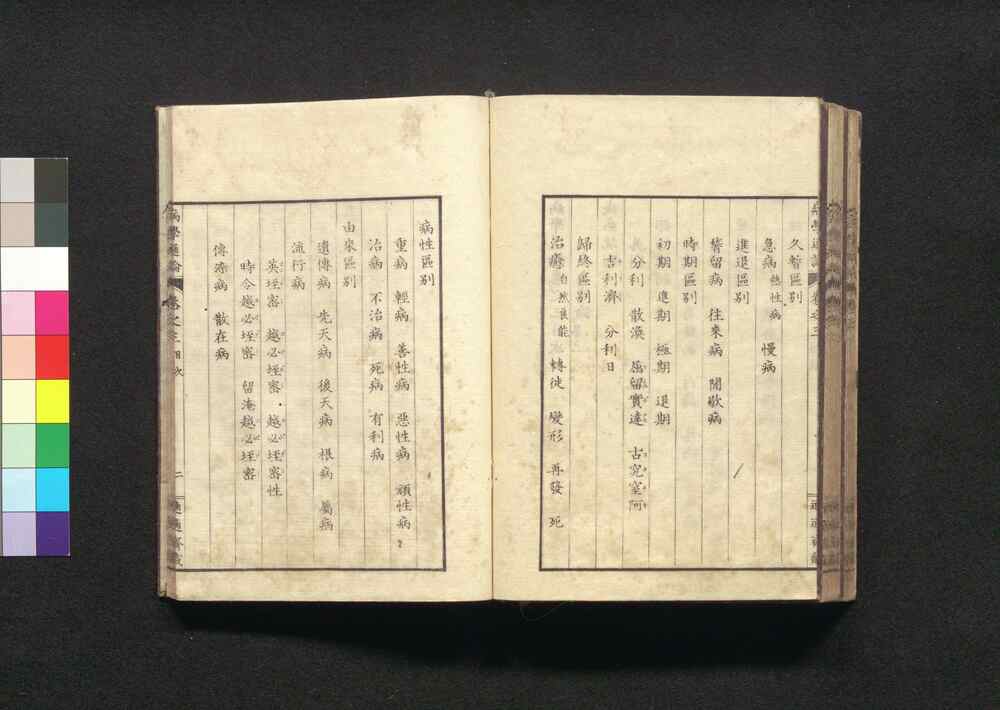 久暫區別
急病 熱性病 慢病
進退區別
稽留病 往來病 間歇病
時期區別
初期 進期 極期 退期
分利 散渙 屈留實達 古究室阿
吉利濟 分利日
歸終區別
治癒 自然良能 轉徙 變形 再發 死
病性區別
重病 輕病 善性病 惡性病 頑性病
治病 不治病 死病 有利病
由來區別
遺傳病 先天病 後天病 根病 屬病
流行病
英垤密 越必垤密 越必垤密性
時令越必垤密 留淹越必垤密
傳染病 散在病
病學通論 卷之三 目次 二